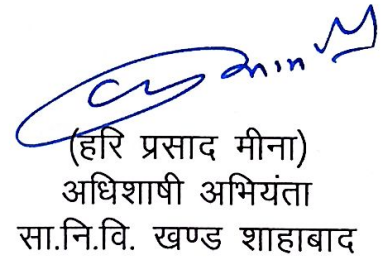 (हरि प्रसाद मीना)
अधिशाषी अभियंता
सा.नि.वि. खण्ड शाहाबाद